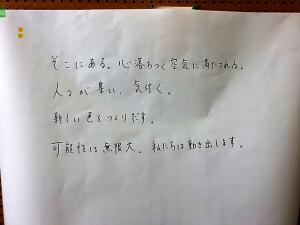 そこにある。心落ちつく空気に満たされる。
人々が集い、気付く。
新しい色をつくりだす。
可能性は無限大。私たちは動き出します。